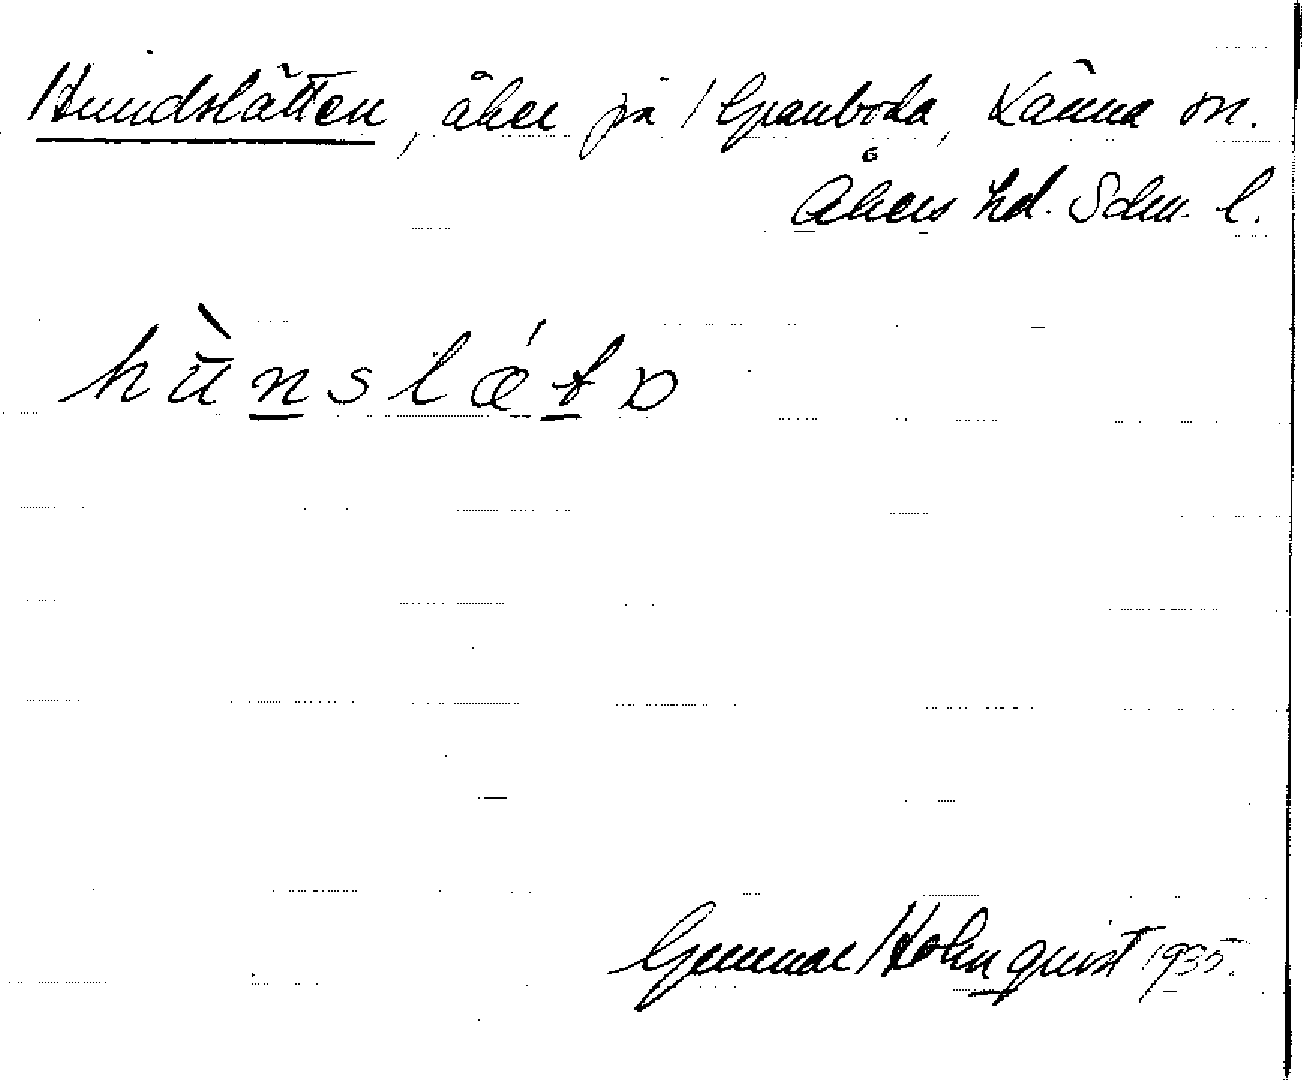 Hundslätten, åker på Granboda, Länna sn.
Åkers hd. Sdm. l.
hùnslǽtɒ
Gunnar Holmquist 1935.